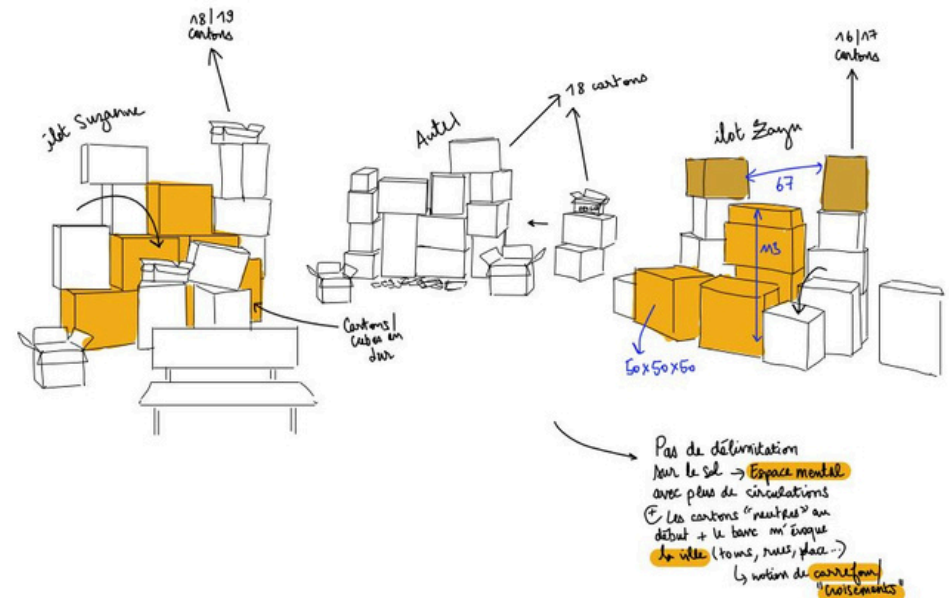 18/19
cartons
ilot Suzanne
Cartons/
cubes en
dur
Autel
18 cartons
16/17
cartons
ilot Zayn
67
113
50x50x50
Pas de délimitation
sur le sol → Espace mental
avec plus de circulations
+ Les cartons "neutres" au
début + le banc m'évoque
la ville (tours, rues, place...)
↳ notion de carrefour/
"croisements"